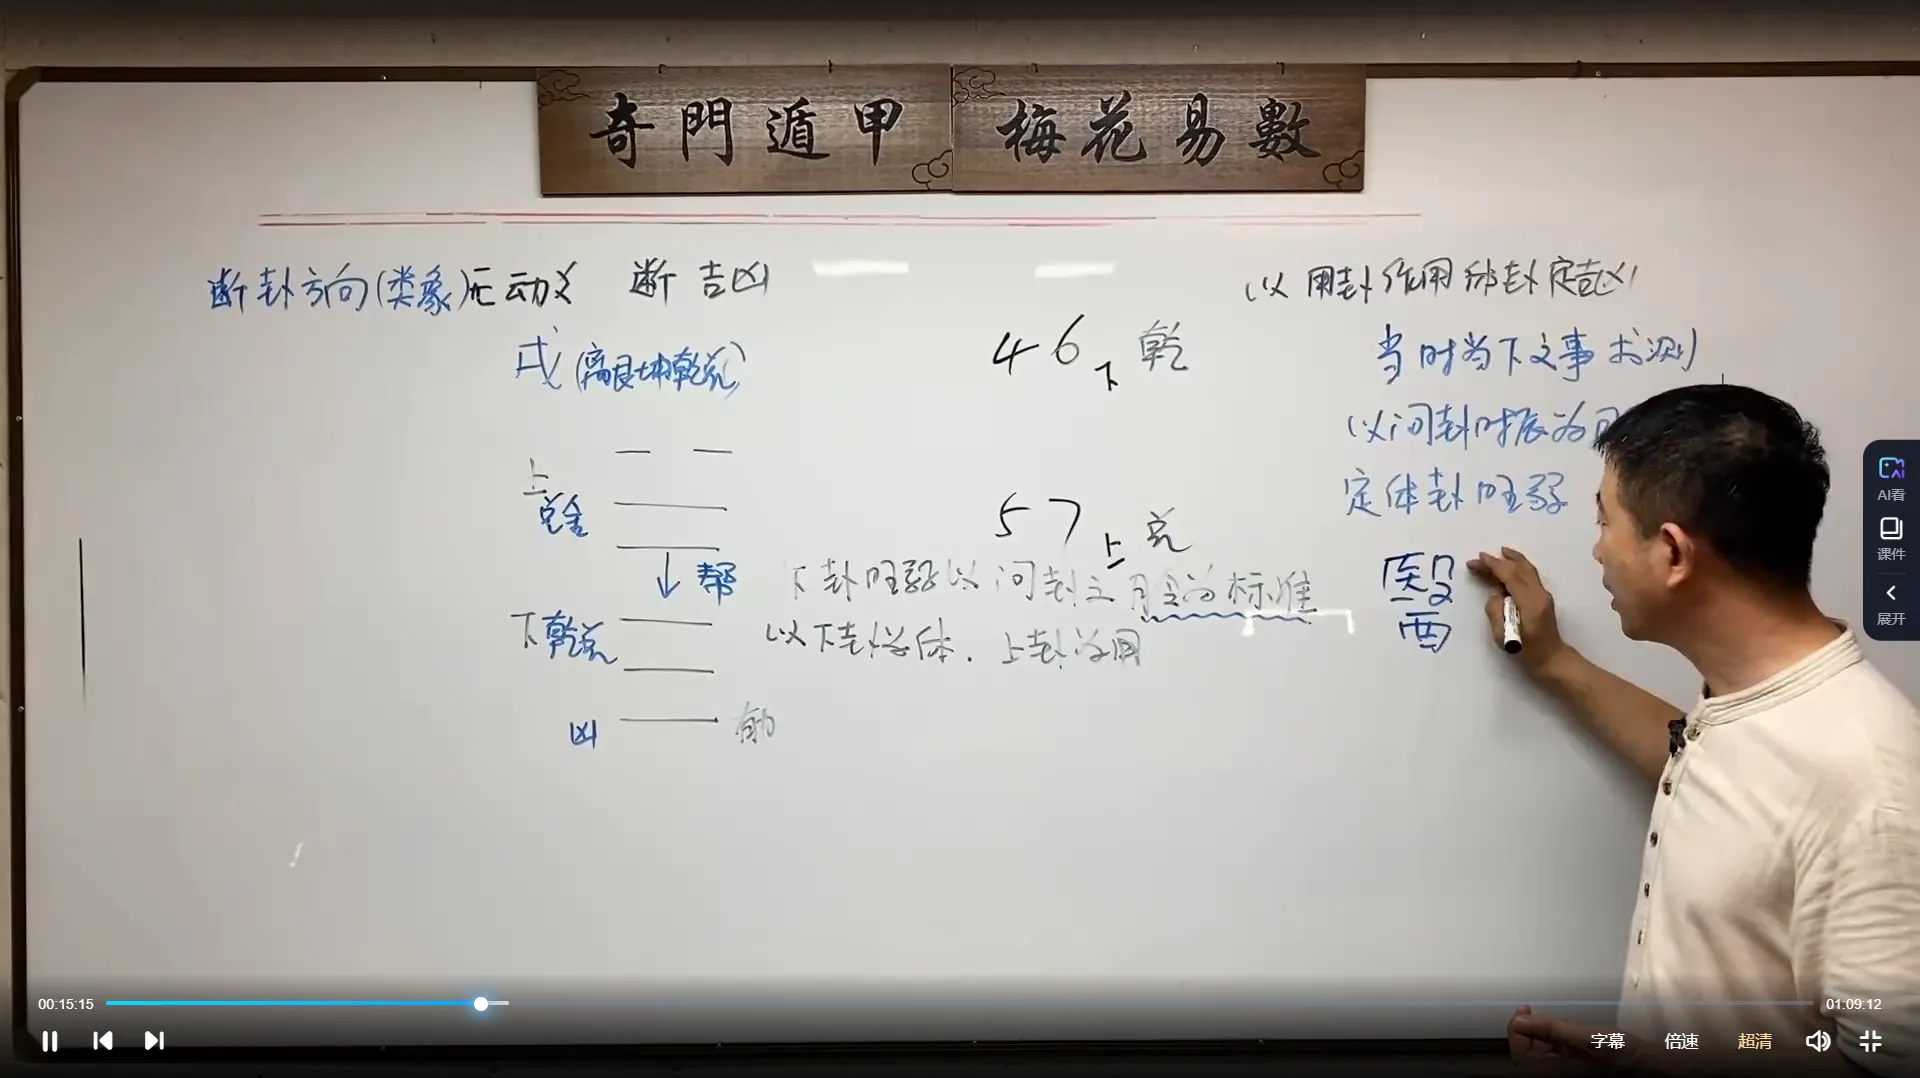 奇門遁甲 梅花易數
断卦方向(类象)无动爻 断吉凶
戌(离艮坤乾兑)
上
兑金
↓帮
下乾兑
凶
46下 乾
57上 兑
下卦旺弱以问卦之月令为标准
以下卦为体.上卦为用
以用卦作用体卦定吉凶
当时当下之事求测
以问卦时辰为
定体卦旺弱
酉
AI看
课件
展开
00:15:15
01:09:12
字幕
倍速
超清